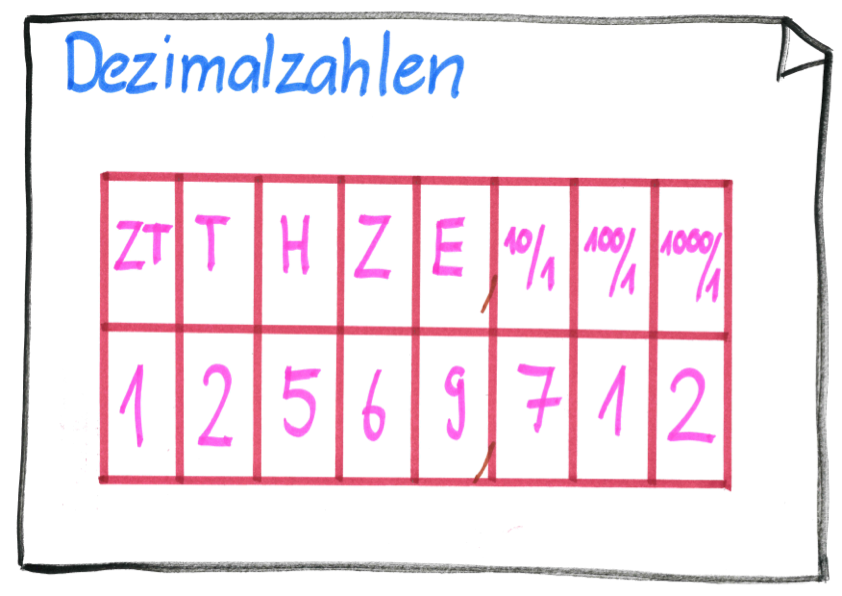 Dezimalzahlen
ZT T H Z E, 10/1 100/1 1000/1
1 2 5 6 9, 7 1 2